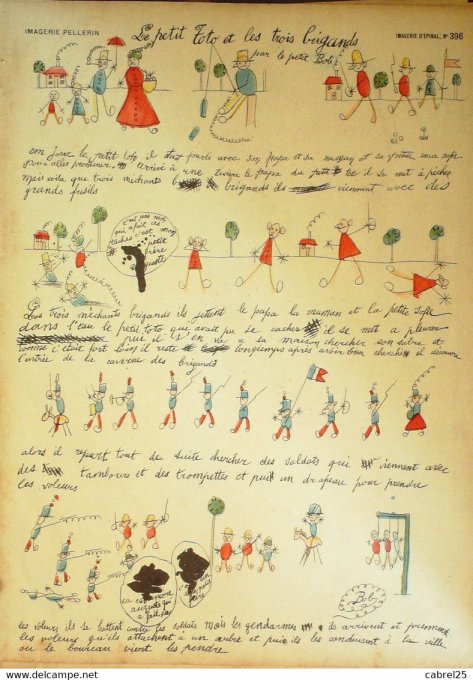 IMAGERIE PELLERIN
Le petit Toto et les trois brigands
IMAGERIE D'ÉPINAL, N° 396
par le petit Bob
un jour le petit toto il était parti avec son papa et sa maman et sa petite seur sofie
pour aller promener. arrivé à une rivière le papa du petit to to il se mit à pécher
mais voila que trois michants brigands ils viennent avec des
grands fusils
c'est pas moi
qui a fait ces
taches c'est mon
petit
frère
Les trois michants brigands ils jettent le papa la maman et la petite sofie
dans l'eau le petit toto qui avait pu se cacher il se met a pleurer
puis il s'en va a sa maison chercher son sabre et
comme c'était fort loin il reste longtemps après avoir bien cherché il découvre
l'entrée de la caverne des brigands
alors il repart tout de suite chercher des soldats qui viennent avec
des tambours et des trompettes et puis un drapeau pour prendre
les voleurs
ça c'est encore
Bob
les voleurs ils se battent contre les soldats mais les gendarmes arrivent et prennent
les voleurs qu'ils attachent à un arbre et puis ils les conduisent à la ville
ou le boureau vient les pendre
cabrel25
www.delcampe.net